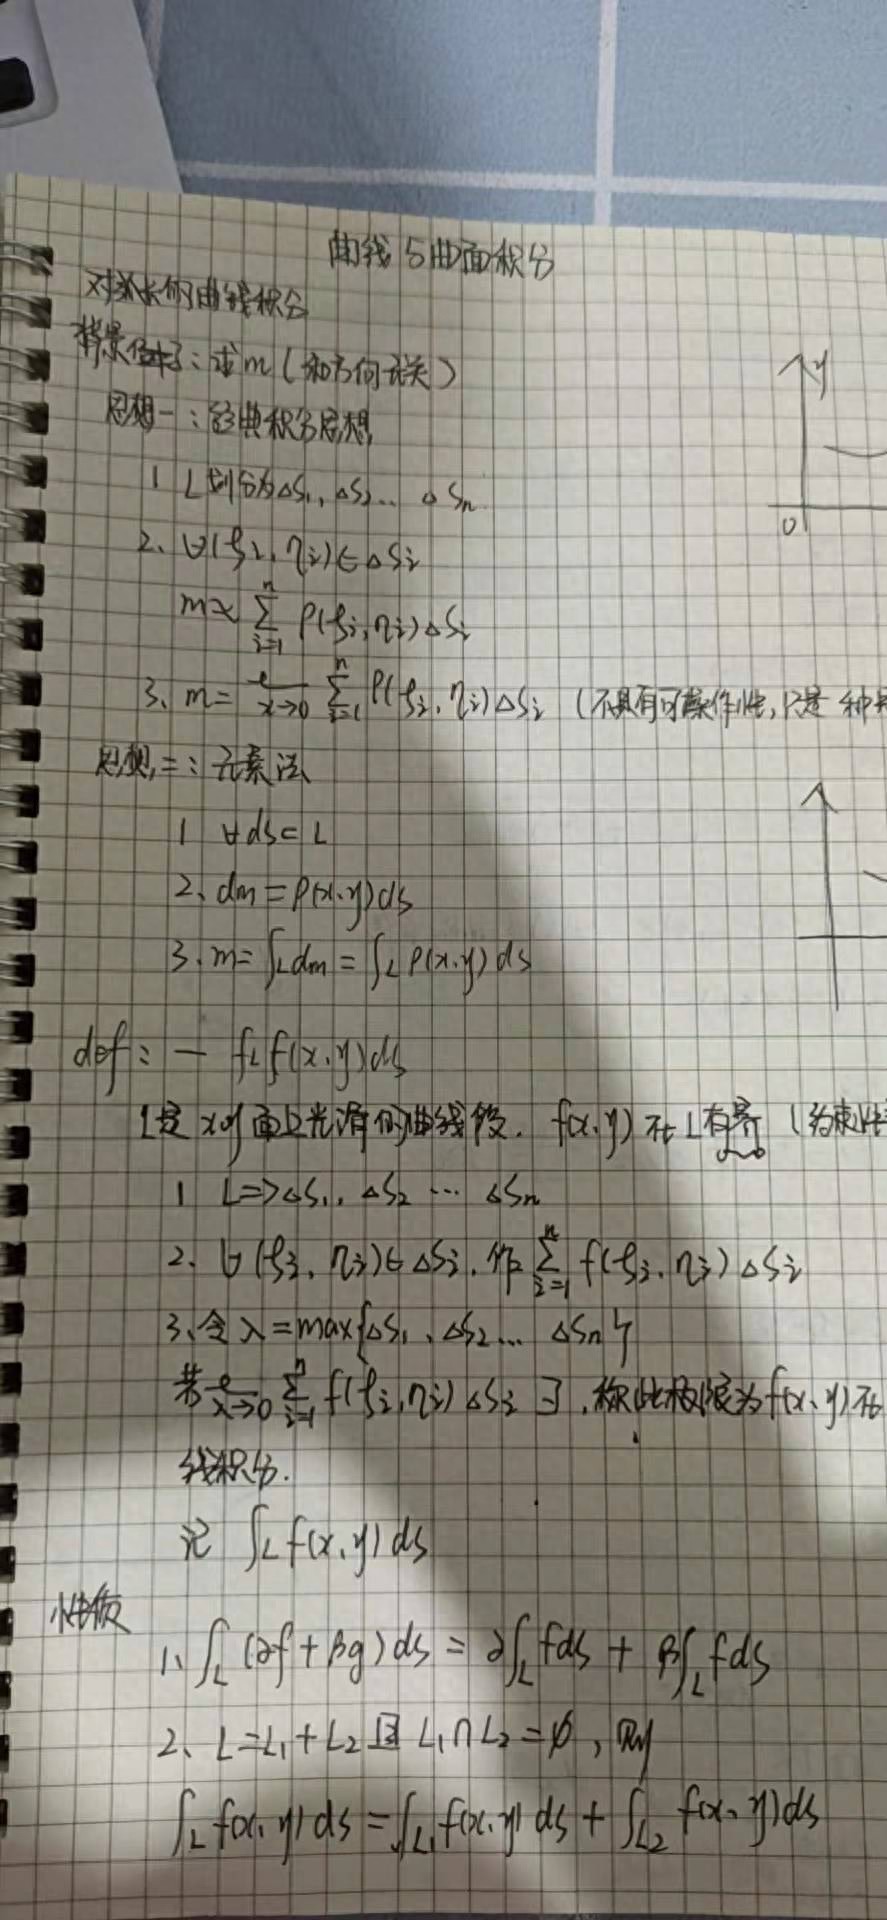 曲线与曲面积分
对弧长的曲线积分
背景例子：求m（和方向无关）
思想一：经典积分思想
1 L划分为ΔS₁, ΔS₂… ΔSₙ
2、∀(ξᵢ, ηᵢ)∈ΔSᵢ
m≈∑ᵢ₌₁ⁿ ρ(ξᵢ, ηᵢ)ΔSᵢ
3、m=ℓ/x→0 ∑ᵢ₌₁ⁿ ρ(ξᵢ, ηᵢ)ΔSᵢ（不具有可操作性，只是一种
思想二：元素法
1 ∀ds⊂L
2、dm=ρ(x、y)ds
3、m=∫_L dm=∫_L ρ(x、y)ds
def：一 ∫_L f(x、y)ds
L是xoy面上光滑的曲线段. f(x、y)在L有界（约束
1 L=>ΔS₁、ΔS₂ … ΔSₙ
2、∀(ξᵢ、ηᵢ)∈ΔSᵢ，作∑ᵢ₌₁ⁿ f(ξᵢ、ηᵢ)ΔSᵢ
3、令λ=max{ΔS₁、ΔS₂… ΔSₙ}
若ℓ/λ→0 ∑ᵢ₌₁ⁿ f(ξᵢ, ηᵢ)ΔSᵢ ∃，称此极限为f(x、y)在
线积分.
记 ∫_L f(x、y)ds
性质
1、∫_L (αf+βg)ds=α∫_L fds+β∫_L fds
2、L=L₁+L₂且L₁∩L₂=∅，则
∫_L f(x、y)ds=∫_L₁ f(x、y)ds+∫_L₂ f(x、y)ds
y
0